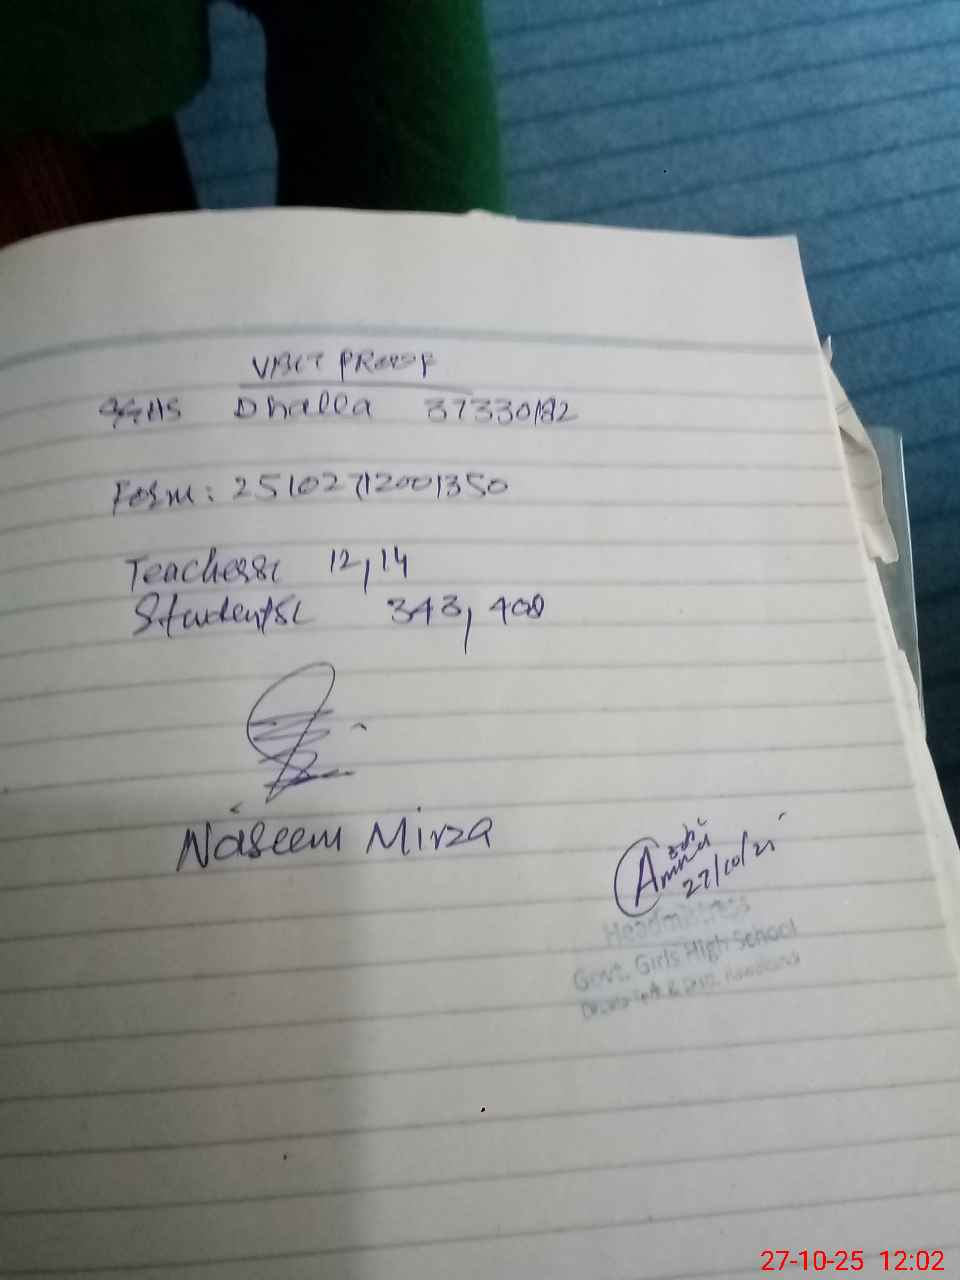 VISIT PROOF
GGHS Dhalla 37330182
Form: 25102712001350
Teachers: 12, 14
Students: 343, 408
Naseem Mirza
Amna
27/10/25
Headmistress
Govt. Girls High School
& Distt. Rawalpindi
27-10-25 12:02